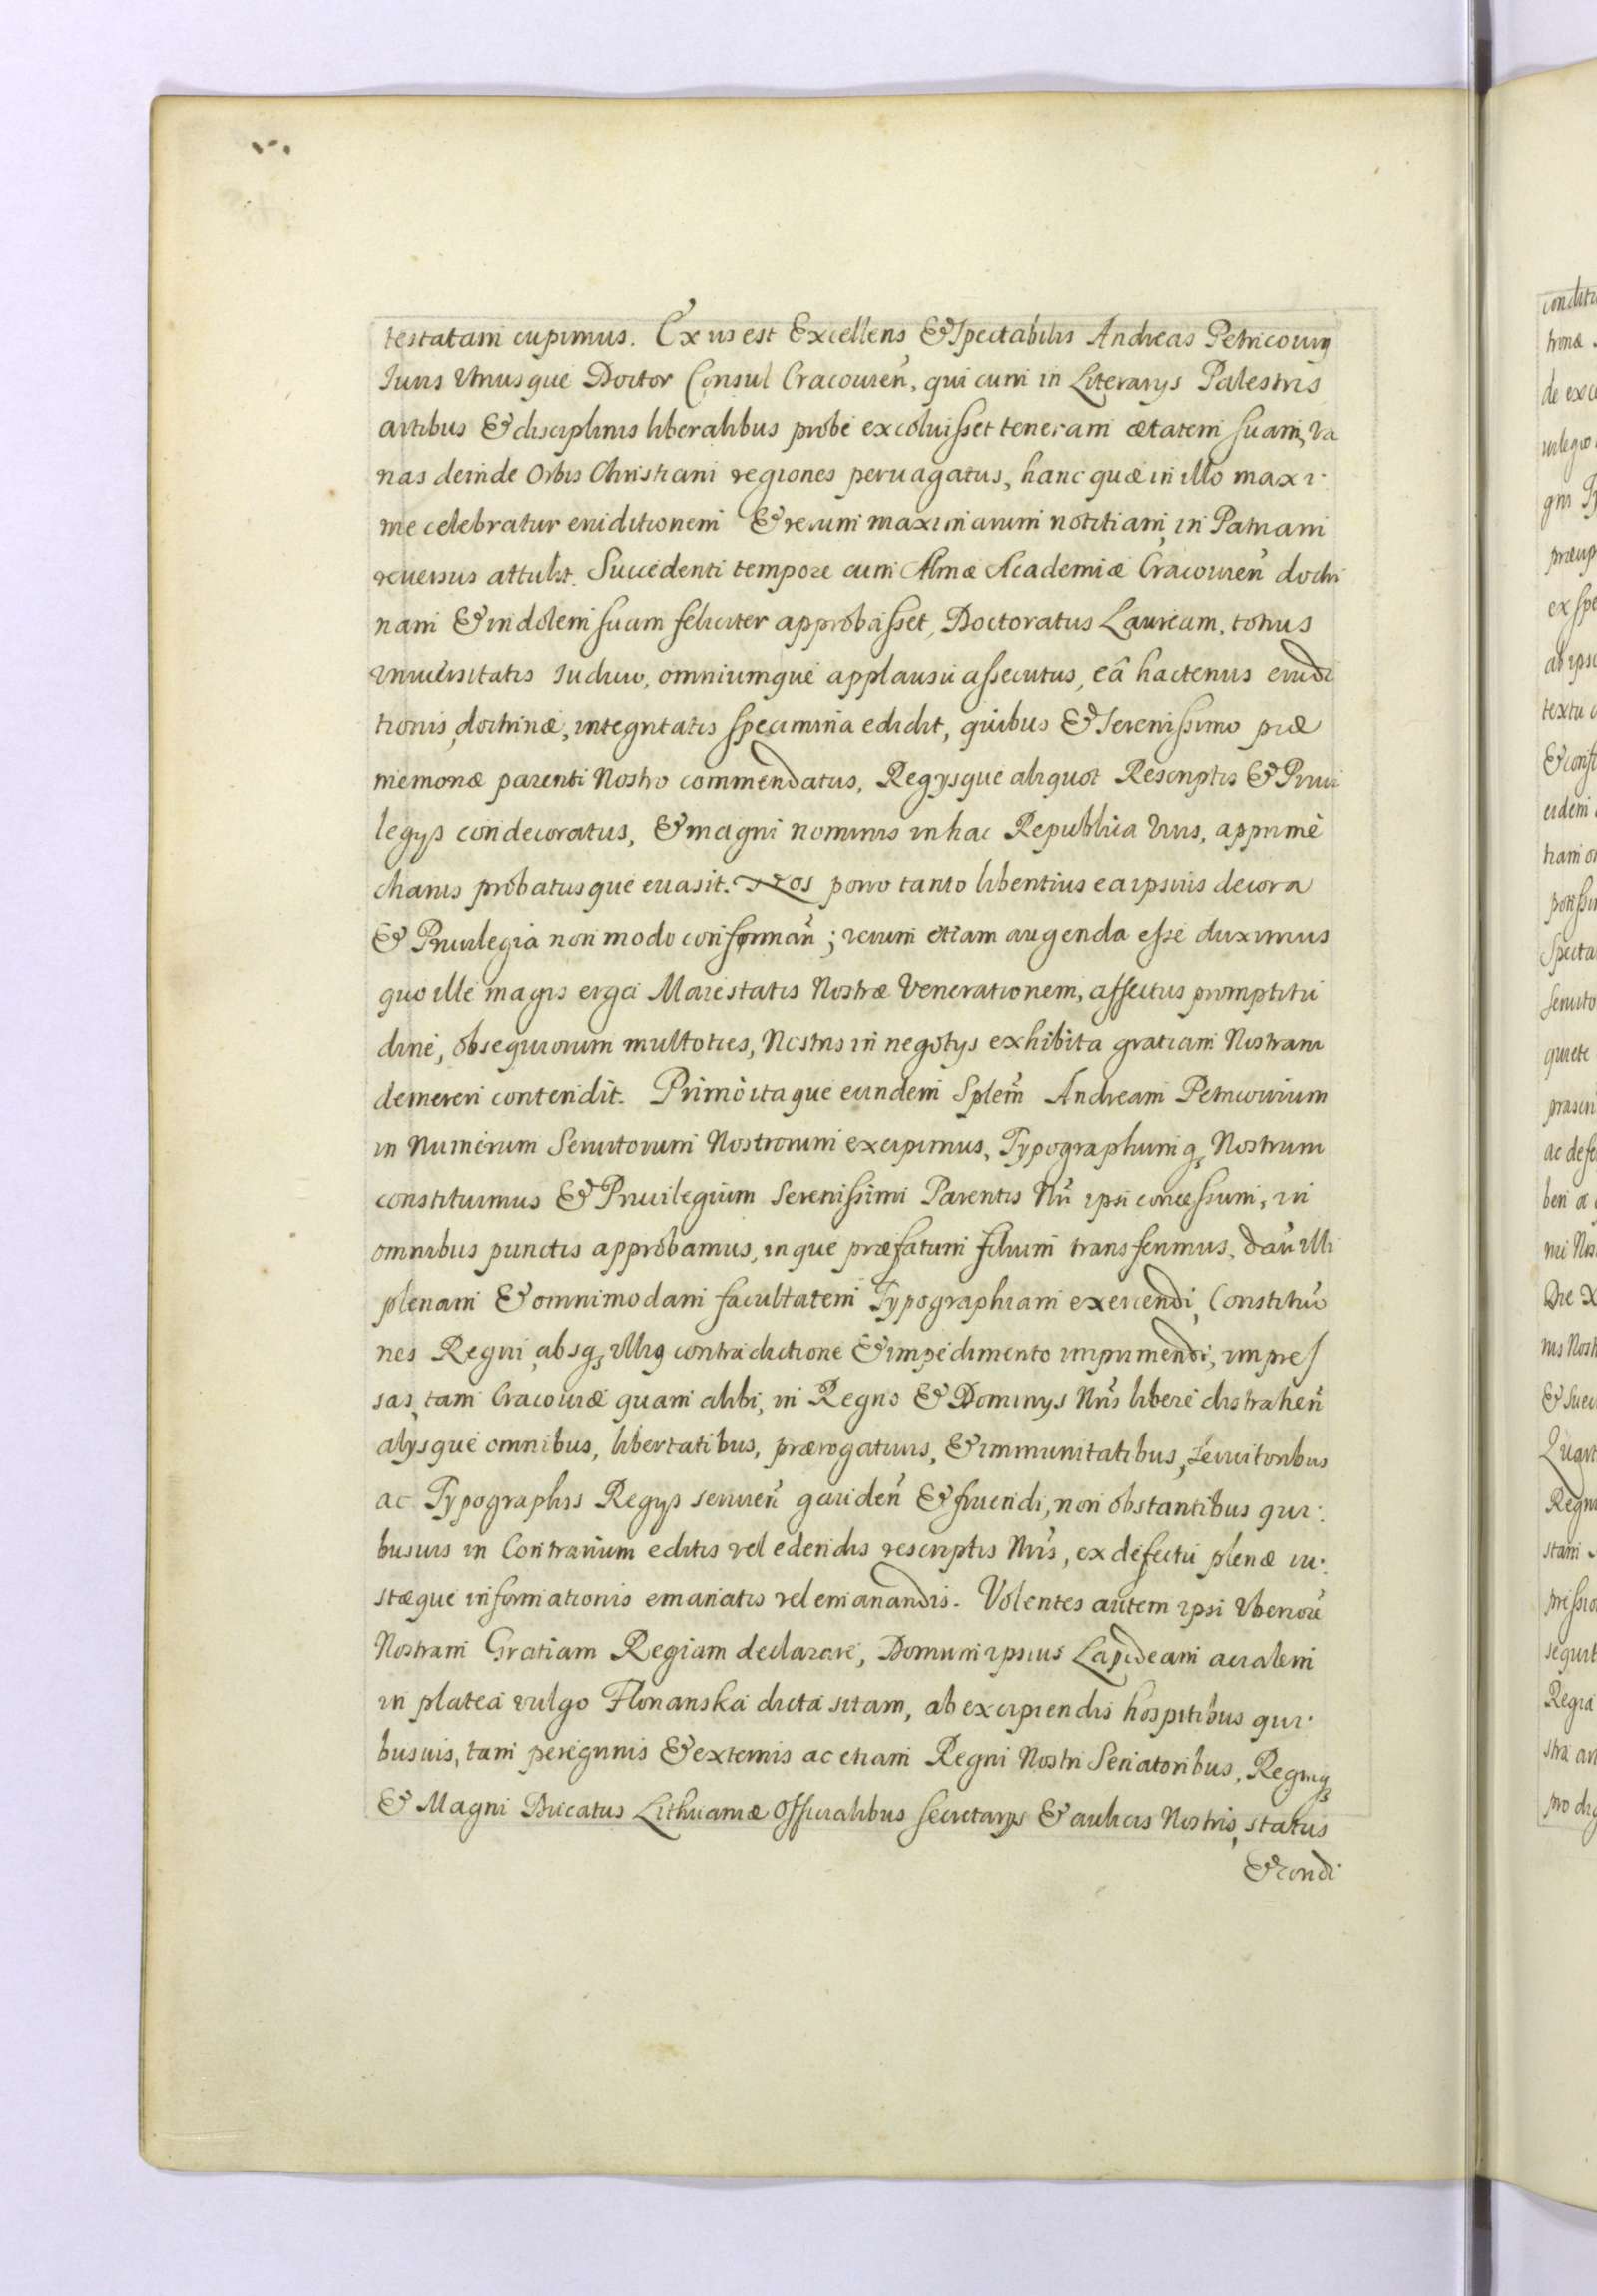 testatam cupimus. Ex iis est Excellens & Spectabilis Andreas Petricouiq
Iuris Vtriusque Doctor Consul Cracouień, qui cum in Literarys Palestris
artibus & disciplinis liberalibus probè excoluisset teneram ætatem suam, va
rias deinde Orbis Christiani regiones peruagatus, hanc quæ in illo maxi:
me celebratur eruditionem & rerum maximarum notitiam, in Patriam
reuersus attulit. Succedenti tempore cum Almæ Academiæ Cracouień doctri
nam & indolem suam feliciter approbasset, Doctoratus Lauream, totius
Vniuersitatis Iudicio, omniumque applausu assecutus, eâ hactenus erudi
tionis, doctrinæ, integritatis specimina edidit, quibus & Serenissimo piæ
memoriæ parenti Nostro commendatus, Regysque aliquot Rescriptis & Priui
legys condecoratus, & magni nominis in hac Republica Vir, apprimè
charus probatusque euasit. Nos porro tanto libentius ea ipsius decora
& Priuilegia non modo confirmań; verum etiam augenda esse duximus
quo ille magis erga Maiestatis Nostræ Venerationem, affectus promptitu
dine, obsequiorum multoties, Nostris in negotys exhibita gratiam Nostram
demereri contendit. Primò itaque eundem Splem̃ Andream Petricouium
in Numerum Seruitorum Nostrorum excipimus, Typographumq; Nostrum
constituimus & Priuilegium Serenissimi Parentis Nrĩ ipsi concessum, in
omnibus punctis approbamus, inque præfatum filium transferimus, dań illi
plenam & omnimodam facultatem Typographiam exercendi, Constitutio
nes Regni, absq; vlliq contradictione & impedimento imprimendi, impres
sas, tam Cracouiæ quam alibi, in Regno & Dominys Nrĩs liberè distraheń
alysque omnibus, libertatibus, prærogatiuis, & immunitatibus, Seruitoribus
ac Typographis Regys seruień gaudeń & fruendi, non obstantibus qui:
busuis in Contrarium editis vel edendis rescriptis Nrĩs, ex defectu plenæ iu:
stæque informationis emanatis vel emanandis. Volentes autem ipsi Vberiorẽ
Nostram Gratiam Regiam declarare, Domum ipsius Lapideam acialem
in platea vulgo Florianska dicta sitam, ab excipiendis hospitibus qui:
busuis, tam peregrinis & externis ac etiam Regni Nostri Senatoribus, Regniq;
& Magni Ducatus Lithuaniæ Officialibus secretarys & aulicis Nostris, status
& condi